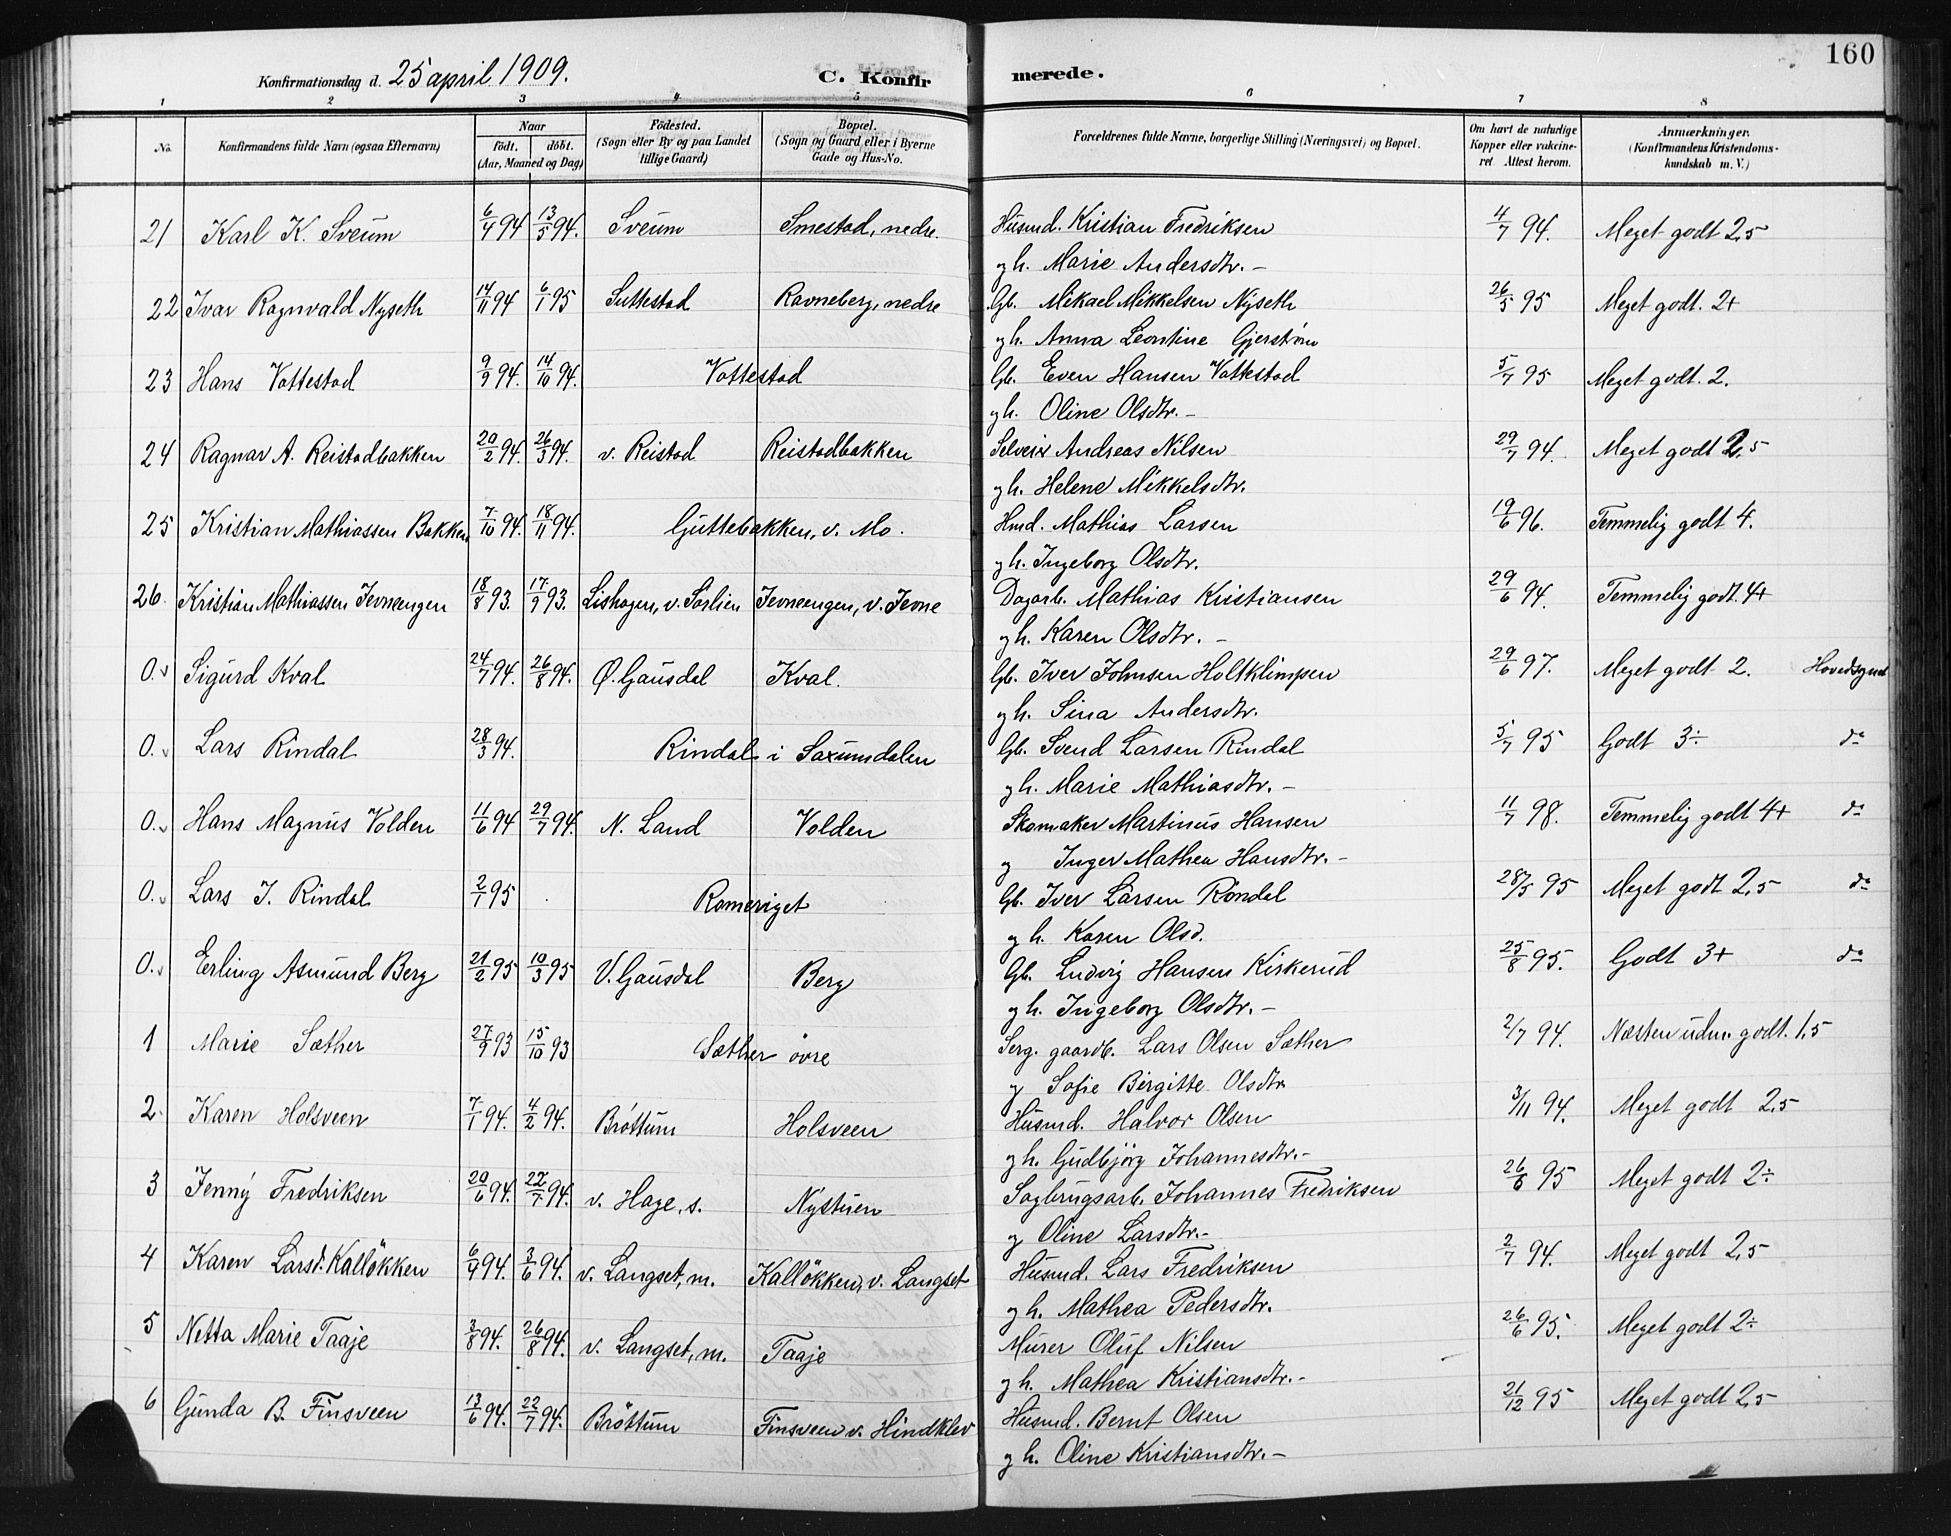 160
Konfirmationsdag d. 25 april 1909. C. Konfirmerede.
1 2 3 4 5 6 7 8
No. Konfirmandens fulde Navn (ogsaa Efternavn) Naar födt. döbt. (Aar, Maaned og Dag) Födested. (Sogn eller By og paa Landet tillige Gaard) Bopæl. (Sogn og Gaard eller i Byerne Gade og Hus-No. Forældrenes fulde Navne, borgerlige Stilling (Næringsvei) og Bopæl. Om havt de naturlige Kopper eller vakcineret Attest herom. Anmærkninger. (Konfirmandens Kristendomskundskab m. V.)
21 Karl K. Sveum 6/4 94 13/5 94. Sveum Smestad, nedre. Husmd. Kristian Fredriksen 4/7 94. Meget godt 2,5
og h. Marie Andersdtr. –
22 Ivar Ragnvald Nyseth 14/11 94 6/1 95 Suttestad Ravneberg, nedre Gb. Mikael Mikkelsen Nyseth 26/5 95 Meget godt. 2+
og h. Anna Leontine Gjerström
23 Hans Vattestad 9/9 94. 14/10 94. Vattestad Gb. Even Hansen Vattestad 5/7 95 Meget godt. 2.
og h. Oline Olsdtr. –
24 Ragnar A. Reistadbakken 20/2 94. 26/3 94. v. Reistad Reistadbakken Selveier Andreas Nilsen 29/7 94. Meget godt 2,5
og h. Helene Mikkelsdtr.
25 Kristian Mathiassen Bakken 7/10 94. 18/11 94. Guttebakken, v. Mo. Hmd. Mathias Larsen 19/6 96. Temmelig godt 4.
og h. Ingeborg Olsdtr.
26. Kristian Mathiassen Jevneengen 18/8 93. 17/9 93. Lishagen, v. Sörlien Jevneengen, v. Jevne Dagarb. Mathias Kristiansen 29/6 94. Temmelig godt. 4+
og h. Karen Olsdtr. –
0. v Sigurd Kval 24/7 94. 26/8 94. Ø. Gausdal Kval. Gb. Iver Johnsen Holtklimpen 29/6 97. Meget godt 2. Hovedsognet
og h. Sina Andersdtr.
0. v Lars Rindal 28/3 94. Rindal i Saxumdalen Gb. Svend Larsen Rindal 5/7 95 Godt 3÷ do
og h. Marie Mathiasdtr. –
0. v Hans Magnus Volden 11/6 94 29/7 94. N. Land Volden Skomaker Martinus Hansen 11/7 98. Temmelig godt 4+ do
og Inger Mathea Hansdtr. –
0. v Lars I. Rindal 2/1 95 Romeriget Gb. Iver Larsen Röndal 28/5 95 Meget godt 2,5 do
og h. Karen Olsd.
0. v Erling Asmund Berg 21/2 95 10/3 95 V. Gausdal Berg Gb. Ludvig Hansen Kirkerud 25/8 95. Godt 3+ do
og h. Ingeborg Olsdtr. –
1 Marie Sæther 27/9 93 15/10 93 Sæther övre Serg. gaardb. Lars Olsen Sæther 2/7 94. Næsten udm. godt. 1,5
og Sofie Birgitte Olsdtr
2. Karen Holsveen 7/1 94. 4/2 94. Bröttum Holsveen Husmd. Halvor Olsen 3/11 94. Meget godt 2,5
og h. Gudbjörg Johannesdtr. –
3 Jenny Fredriksen 20/6 94. 22/7 94. v. Hage, s. Nystuen Sagbrugsarb. Johannes Fredriksen 26/6 95 Meget godt 2÷
og Oline Larsdtr. –
4 Karen Larsd. Kallökken 6/4 94. 3/6 94. v. Langset, m. Kallökken, v. Langset Husmd. Lars Fredriksen 2/7 94. Meget godt 2,5
og h. Mathea Pedersdtr.
5 Netta Marie Taaje 3/8 94. 26/8 94. v. Langset, m. Taaje Murer Oluf Nilsen 26/6 95. Meget godt 2÷
og h. Mathea Kristiansdtr. –
6 Gunda B. Finsveen 13/6 94. 22/7 94. Bröttum Finsveen v. Hindklev Husmd. Bernt Olsen 21/12 95 Meget godt 2,5
og h. Oline Kristiansdtr. –